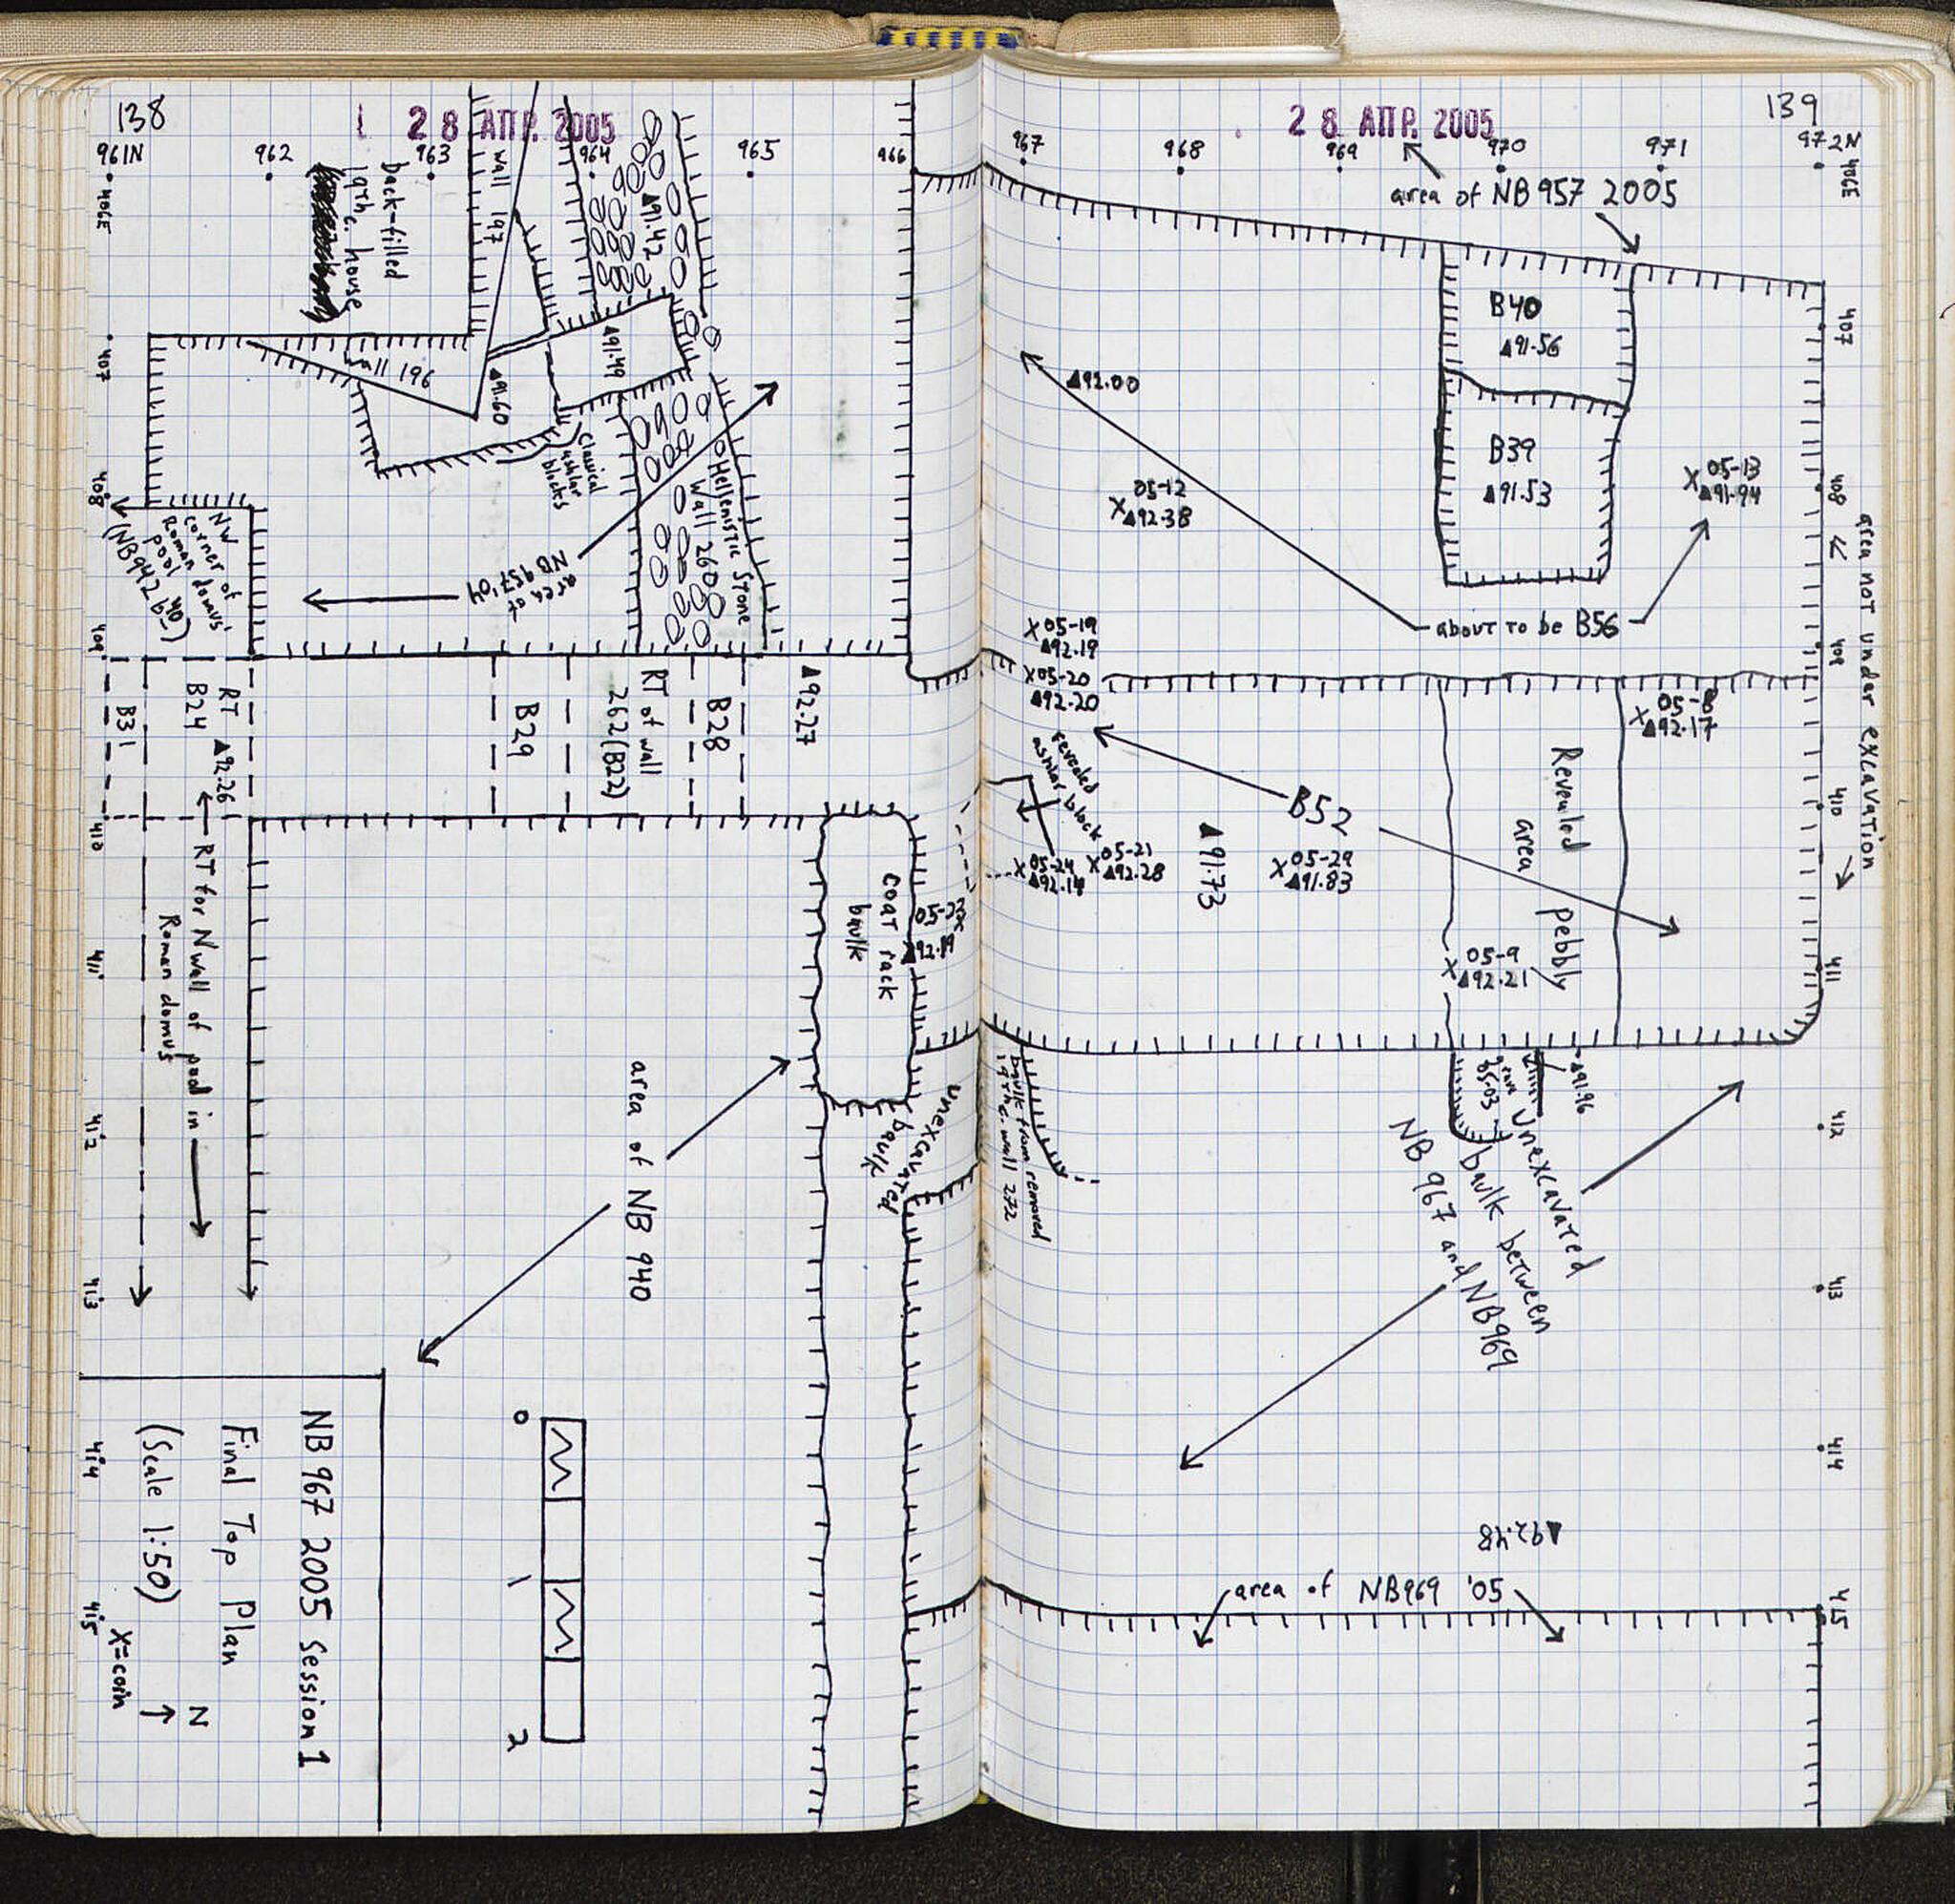 138
28 ΑΠΡ. 2005
961N
962
963
964
965
966
406E
407
408
409
410
411
412
413
414
415
back-filled
19th c. house
wall 197
▲91.42
▲91.49
▲91.60
wall 196
Classical
ashlar
blocks
Hellenistic Stone
Wall 260
area of
NB 957 '04
NW
corner of
Roman domus'
pool
(NB942 b40)
B31
RT
B24
▲92.26
B29
RT of wall
262 (B22)
B28
▲92.27
RT for N wall of pool in
Roman domus
coat rack
baulk
05-23
▲92.19
unexcavated
baulk
area of NB 940
0
1
2
NB 967 2005 Session 1
Final Top Plan
(Scale 1:50)
N
X=coin
139
28 ΑΠΡ. 2005
967
968
969
970
971
972N
406E
407
408
409
410
411
412
413
414
415
area of NB 957 2005
B40
▲91.56
B39
▲91.53
▲92.00
X 05-12
▲92.38
X 05-13
▲91.94
about to be B56
area not under excavation
X 05-19
▲92.19
X 05-20
▲92.20
X 05-8
▲92.17
revealed
ashlar block
B52
X 05-24
▲92.14
X 05-21
▲92.28
▲91.73
X 05-29
▲91.83
Revealed pebbly
area
X 05-9
▲92.21
baulk from removed
19th c. wall 272
05-03
▲91.96
Unexcavated
baulk between
NB 967 and NB969
▲92.48
area of NB969 '05